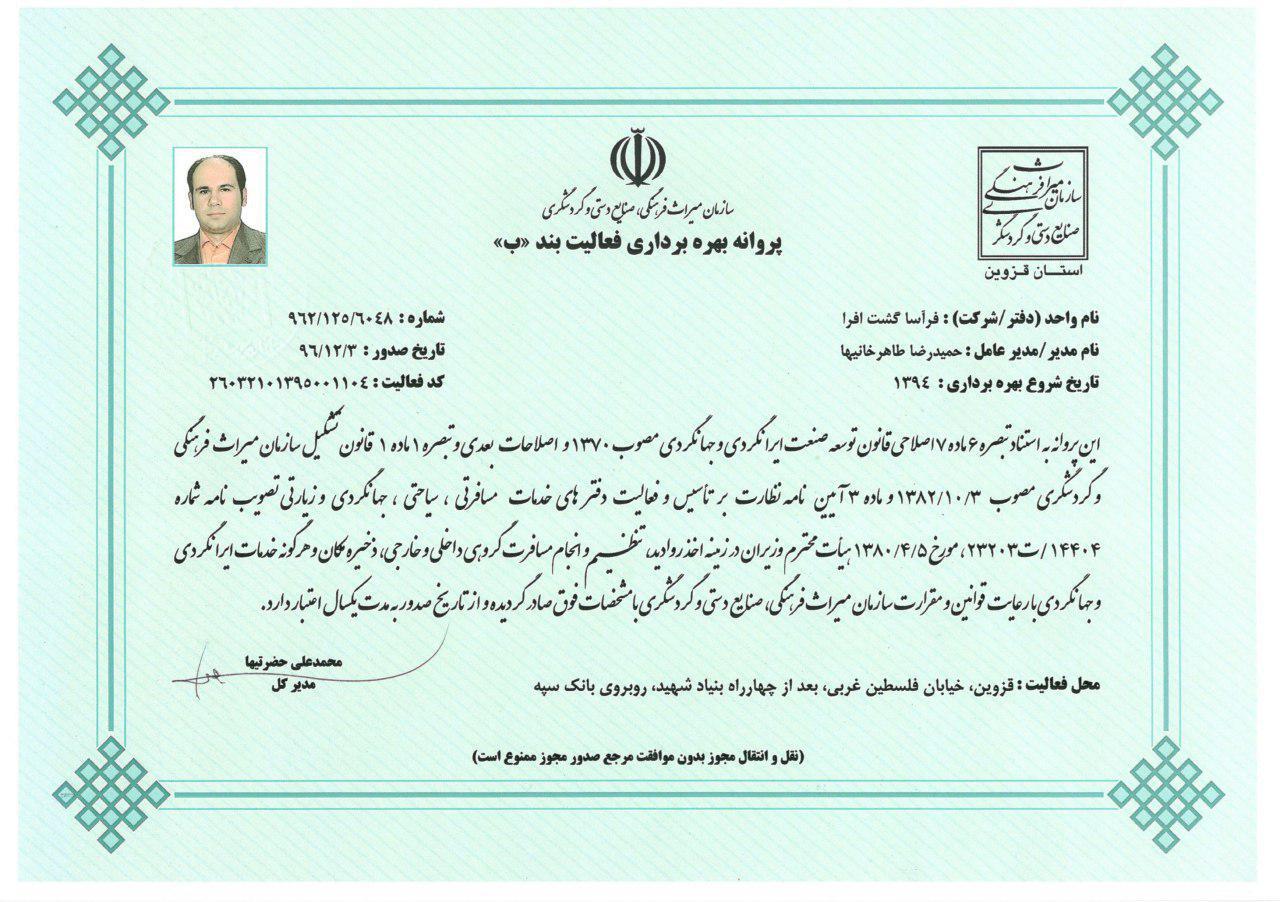 سازمان میراث فرهنگی، صنایع دستی و گردشگری
پروانه بهره برداری فعالیت بند «ب»
سازمان میراث فرهنگی
صنایع دستی و گردشگری
استان قزوین
نام واحد (دفتر/شرکت) : فرآسا گشت افرا
نام مدیر/مدیر عامل : حمیدرضا طاهرخانیها
تاریخ شروع بهره برداری : ۱۳۹۴
شماره : ۹۶۲/۱۲۵/۶۰۴۸
تاریخ صدور : ۹۶/۱۲/۳
کد فعالیت : ۲۶۰۳۲۱۰۱۳۹۵۰۰۱۱۰۴
این پروانه به استناد تبصره ۶ ماده ۷ اصلاحی قانون توسعه صنعت ایرانگردی و جهانگردی مصوب ۱۳۷۰ و اصلاحات بعدی و تبصره ۱ ماده ۱ قانون تشکیل سازمان میراث فرهنگی
و گردشگری مصوب ۱۳۸۲/۱۰/۳ و ماده ۳ آیین نامه نظارت بر تأسیس و فعالیت دفترهای خدمات مسافرتی ، سیاحتی ، جهانگردی و زیارتی تصویب نامه شماره
۱۴۴۰۴/ت۲۳۲۰۳، مورخ ۱۳۸۰/۴/۵ هیأت محترم وزیران در زمینه اخذ روادید، تنظیم و انجام مسافرت گروهی داخلی و خارجی، ذخیره مکان و هرگونه خدمات ایرانگردی
و جهانگردی با رعایت قوانین و مقرارت سازمان میراث فرهنگی، صنایع دستی و گردشگری با مشخصات فوق صادر گردیده و از تاریخ صدور به مدت یکسال اعتبار دارد.
محمدعلی حضرتیها
مدیر کل
محل فعالیت : قزوین، خیابان فلسطین غربی، بعد از چهارراه بنیاد شهید، روبروی بانک سپه
(نقل و انتقال مجوز بدون موافقت مرجع صدور مجوز ممنوع است)